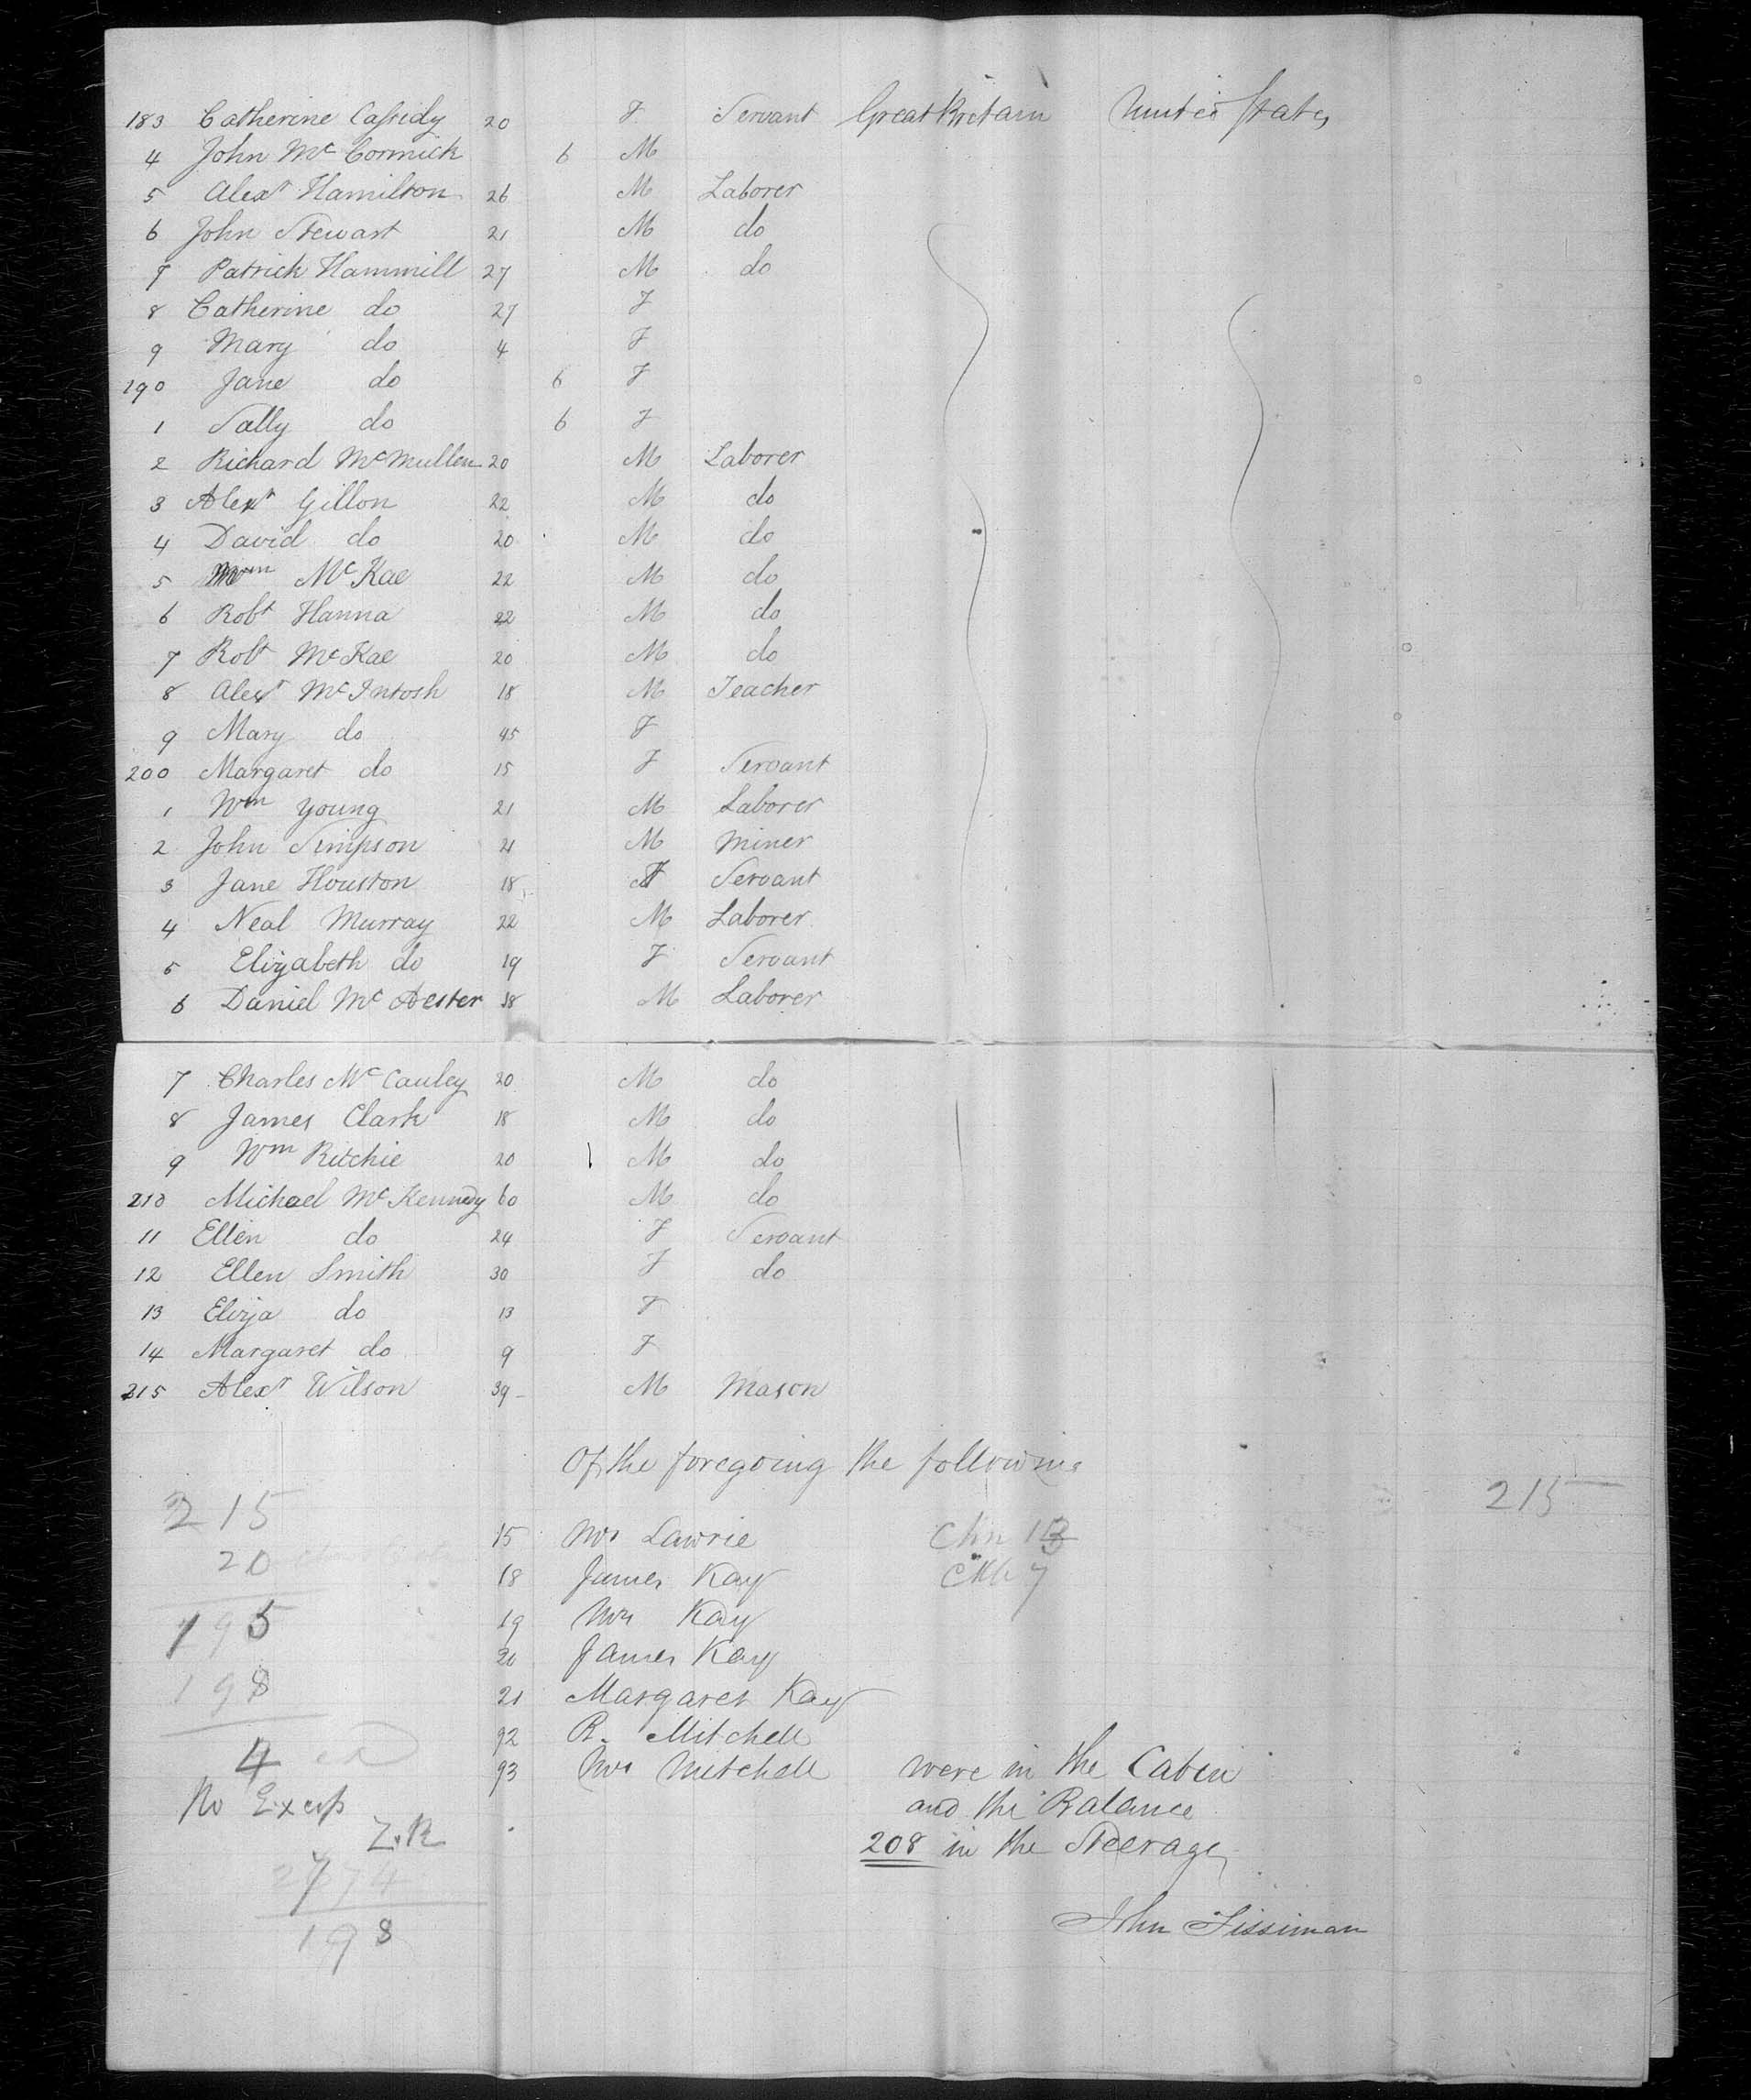 183 Catherine Cassidy 20 F Servant Great Britain United States
4 John Mc Cormick 6 M
5 Alexr Hamilton 26 M Laborer
6 John Stewart 21 M do
7 Patrick Hammill 27 M do
8 Catherine do 27 F
9 Mary do 4 F
190 Jane do 6 F
1 Sally do 6 F
2 Richard McMullen 20 M Laborer
3 Alexr Gillon 22 M do
4 David do 20 M do
5 Wm McKae 22 M do
6 Robt Hanna 22 M do
7 Robt McKae 20 M do
8 Alexr McIntosh 18 M Teacher
9 Mary do 45 F
200 Margaret do 15 F Servant
1 Wm Young 21 M Laborer
2 John Simpson 21 M Miner
3 Jane Houston 18 F Servant
4 Neal Murray 22 M Laborer
5 Elizabeth do 19 F Servant
6 Daniel Mc Aester 38 M Laborer
7 Charles McCauley 20 M do
8 James Clark 18 M do
9 Wm Ritchie 20 M do
210 Michael McKennedy 60 M do
11 Ellen do 24 F Servant
12 Ellen Smith 30 F do
13 Eliza do 13 F
14 Margaret do 9 F
215 Alexr Wilson 39 M Mason
Of the foregoing the following
215
215
15 Mrs Lawrie
20
18 James Kay
195
19 Mrs Kay
20 James Kay
198
21 Margaret Kay
92 R. Mitchell
4
93 Mrs Mitchell were in the Cabin
No Excess
and the Balance
Z.R
208 in the Steerage
198
John Sissiman